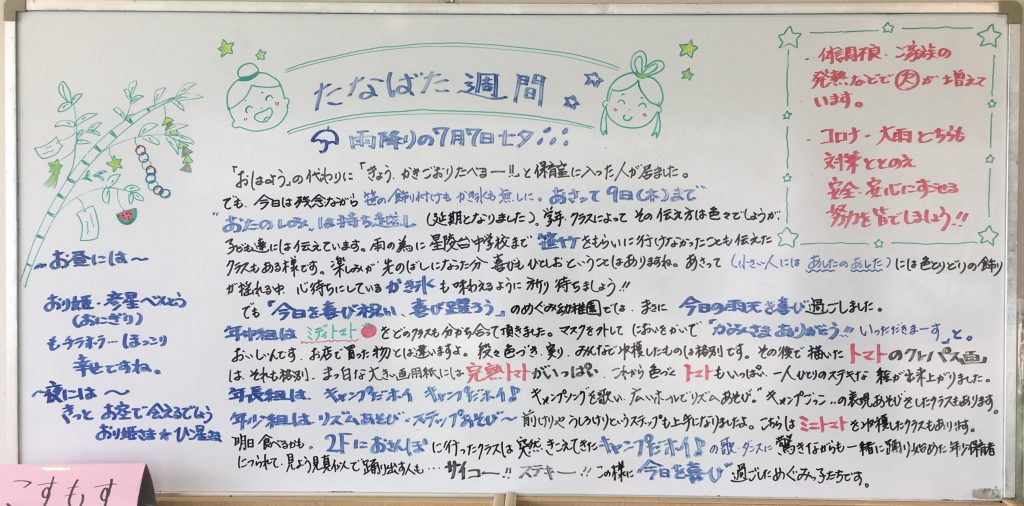 たなばた週間
雨降りの7月7日七夕
「おはよう」の代わりに「きょう、かきごおりたべるー!!」と保育室に入った人が居ました。
でも、今日は残念ながら笹の飾り付けもかき氷も無しに。あさって9日(木)まで
"おたのしみ"は持ち越し(延期となりました)学年クラスによってその伝え方は色々でしょうが、
子ども達には伝えています。雨の為に星陵台中学校まで笹竹をもらいに行けなかったことも伝えた
クラスもある様です。楽しみが先のばしになった分喜びもひとしおということはありますね。あさって(小さい人にはあしたのあした)には色とりどりの飾り
が揺れる中、心待ちにしているかき氷も味わえるように祈り待ちましょう!!
でも「今日を喜び祝い、喜び躍ろう」のめぐみ幼稚園では、まさに今日の雨天を喜び過ごしました。
年中組はミディトマトをどのクラスも分かち合って頂きました。マスクを外してにおいをかいで「かみさまありがとう!!いっただきまーす」と。
おいしいんです。お店で買った物とは違いますよ。段々色づき、実り、みんなで収穫したものは格別です。その後で描いたトマトのクレパス画
は、それも格別、まっ白な大きい画用紙には完熟トマトがいっぱい、これから色づくトマトもいっぱい、一人ひとりのステキな絵が出来上がりました。
年長組は、キャンプだホイ キャンプだホイ♪ キャンプソングを歌い、広いホールでリズムあそび。"キャンプごっこ"の表現あそびをしたクラスもあります。
年少組はリズムあそび・ステップあそび〜 前けりやうしろけりというステップも上手になりましたよ。こちらはミニトマトを収穫したクラスもあります。
明日食べるかも。2Fにおさんぽに行ったクラスは突然きこえてきたキャンプだホイ♪の歌・ダンスに驚きながらも一緒に踊り始めた年少保育者
につられて、見よう見真似で踊り出す人も…サイコー!!ステキー!!この様に今日を喜び過ごしためぐみっ子たちです。
・体調不良・ご家族の
発熱などで欠が増えて
います。
・コロナ・大雨どちらも
対策ととのえ
安全・安心にすごせる
努力を皆でしましょう!!
〜お昼には〜
おり姫・彦星べんとう
(おにぎり)
もチラホラ…ほっこり
幸せですね。
〜夜には〜
きっとお空で会えるでしょう
おり姫さま☆ひこ星さま
こすもす